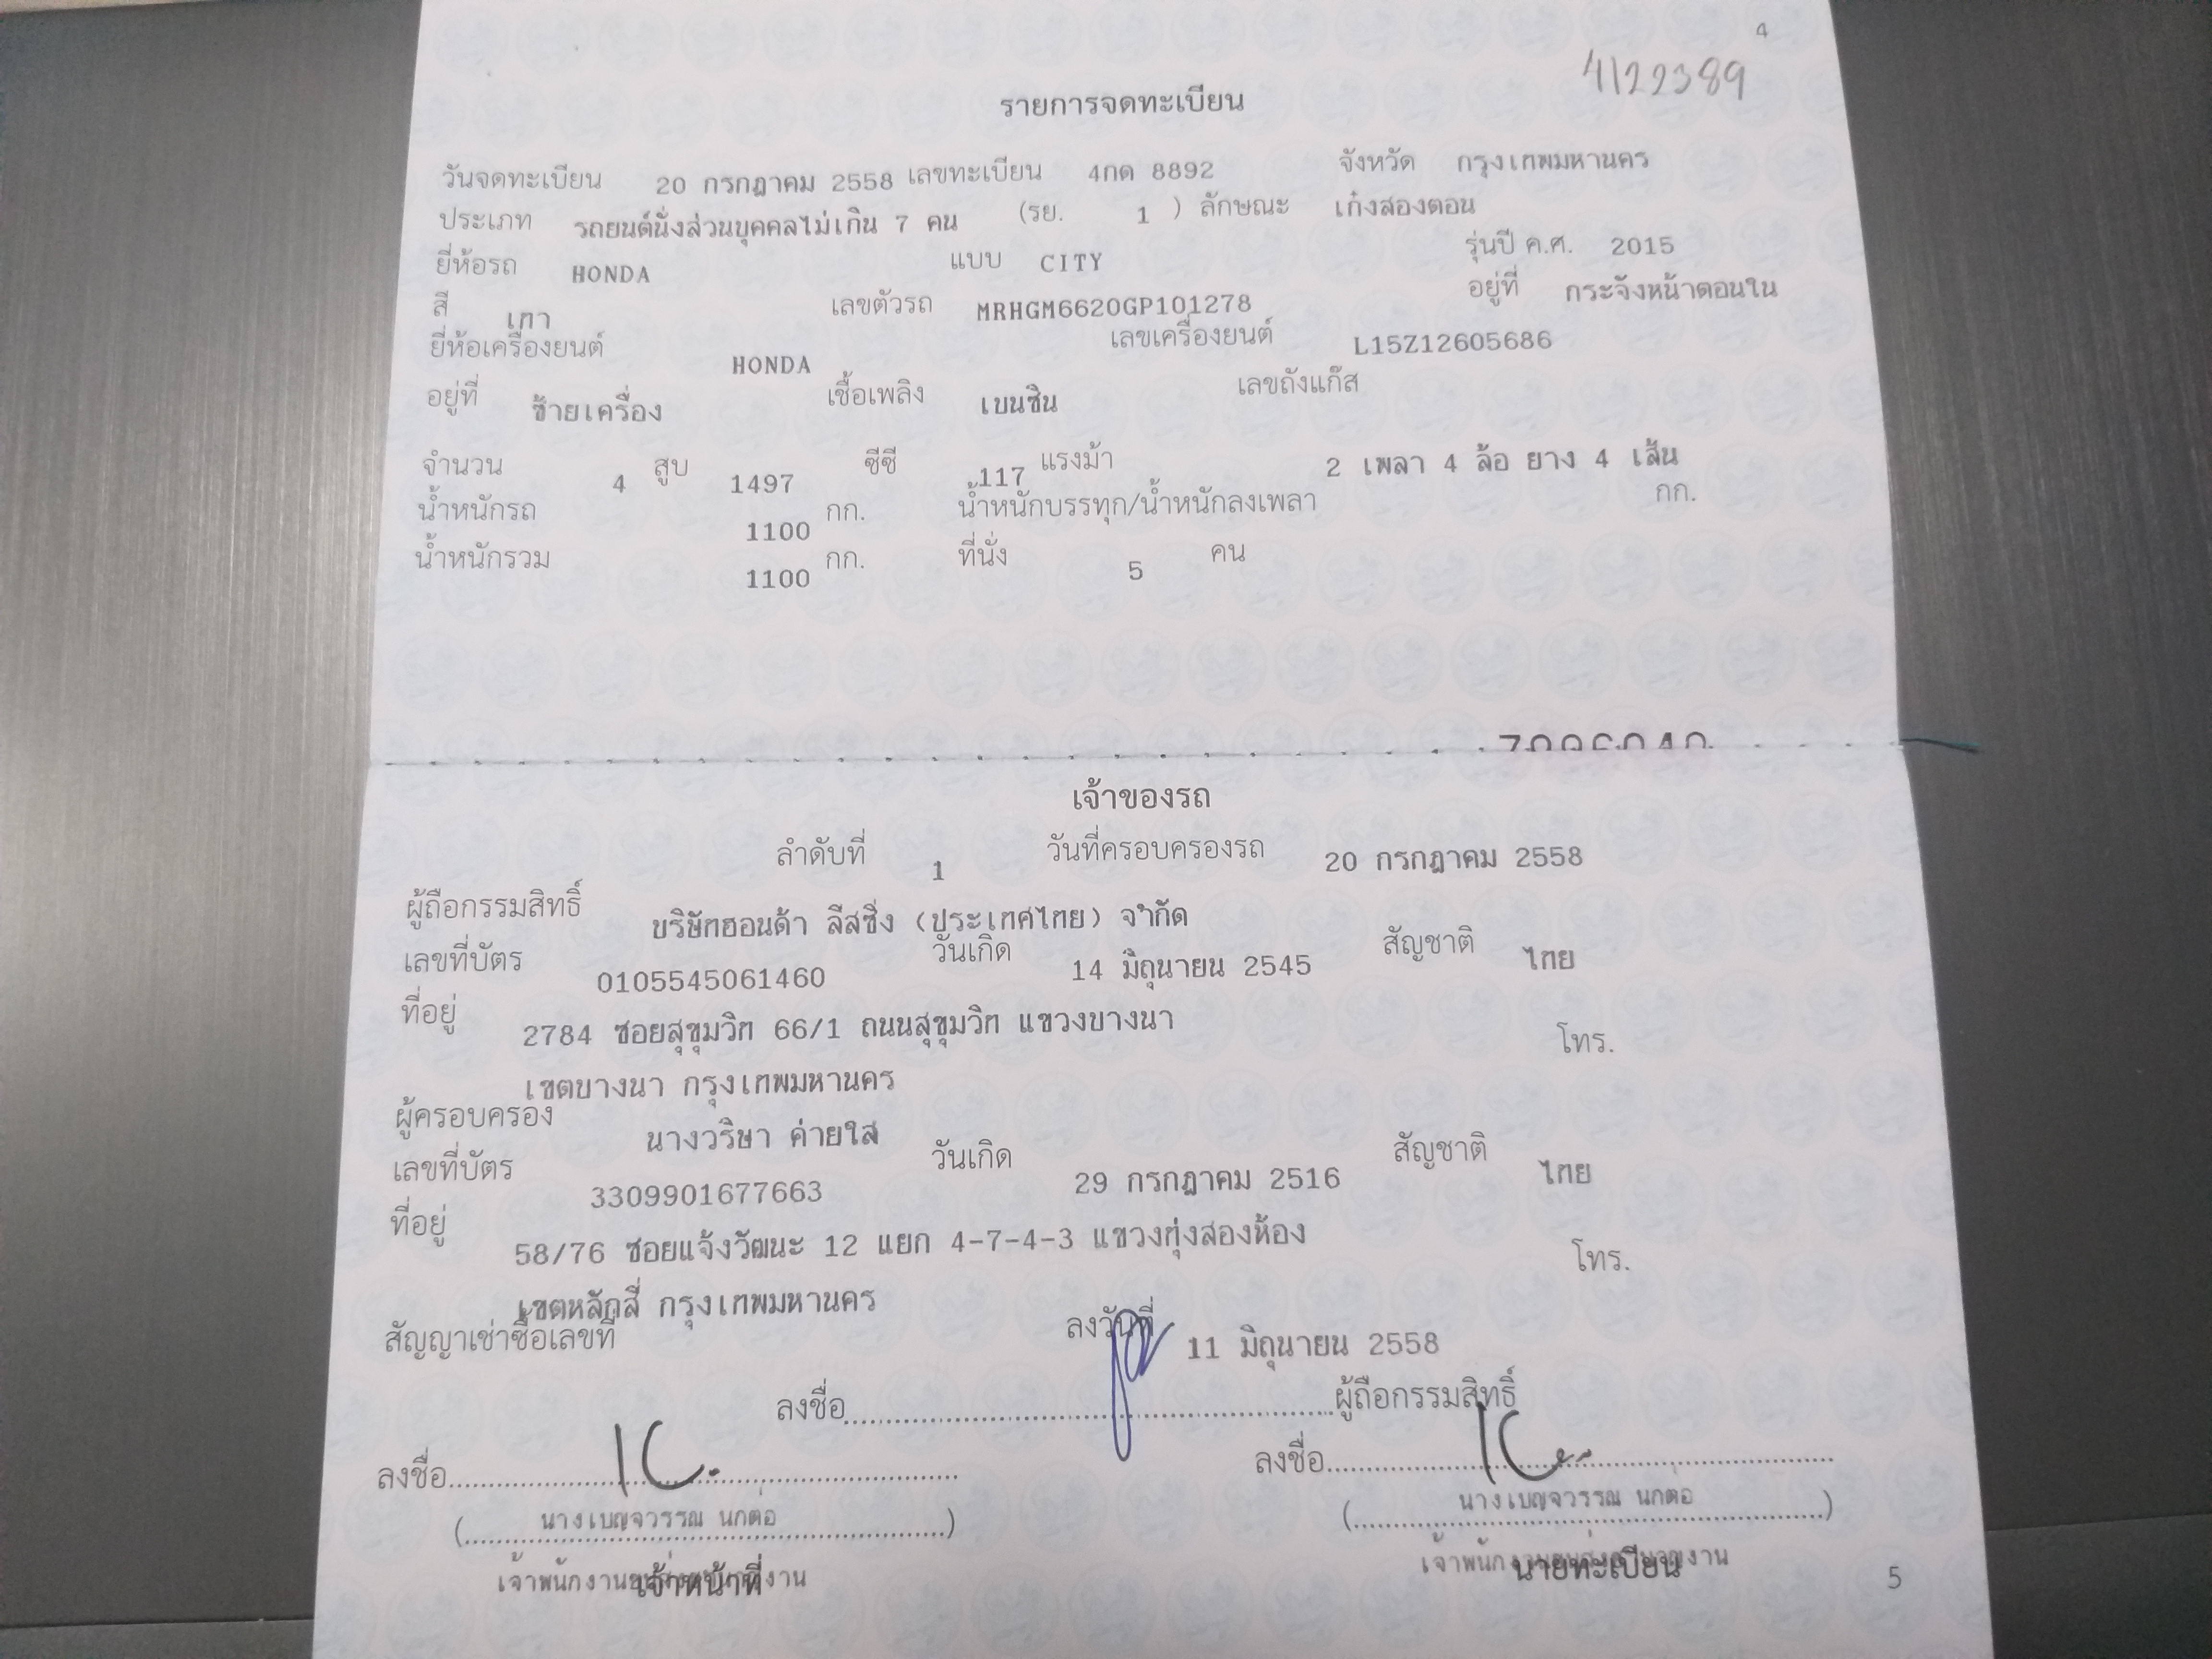 4
4122389
รายการจดทะเบียน
วันจดทะเบียน 20 กรกฎาคม 2558 เลขทะเบียน 4กด 8892 จังหวัด กรุงเทพมหานคร
ประเภท รถยนต์นั่งส่วนบุคคลไม่เกิน 7 คน (รย. 1 ) ลักษณะ เก๋งสองตอน
ยี่ห้อรถ HONDA แบบ CITY รุ่นปี ค.ศ. 2015
สี เทา เลขตัวรถ MRHGM6620GP101278 อยู่ที่ กระจังหน้าตอนใน
ยี่ห้อเครื่องยนต์ HONDA เลขเครื่องยนต์ L15Z12605686
อยู่ที่ ซ้ายเครื่อง เชื้อเพลิง เบนซิน เลขถังแก๊ส
จำนวน 4 สูบ 1497 ซีซี 117 แรงม้า 2 เพลา 4 ล้อ ยาง 4 เส้น
น้ำหนักรถ 1100 กก. น้ำหนักบรรทุก/น้ำหนักลงเพลา กก.
น้ำหนักรวม 1100 กก. ที่นั่ง 5 คน
เจ้าของรถ
ลำดับที่ 1 วันที่ครอบครองรถ 20 กรกฎาคม 2558
ผู้ถือกรรมสิทธิ์ บริษัทฮอนด้า ลีสซิ่ง (ประเทศไทย) จำกัด
เลขที่บัตร 0105545061460 วันเกิด 14 มิถุนายน 2545 สัญชาติ ไทย
ที่อยู่ 2784 ซอยสุขุมวิท 66/1 ถนนสุขุมวิท แขวงบางนา โทร.
เขตบางนา กรุงเทพมหานคร
ผู้ครอบครอง นางวริษา ค่ายใส
เลขที่บัตร 3309901677663 วันเกิด 29 กรกฎาคม 2516 สัญชาติ ไทย
ที่อยู่ 58/76 ซอยแจ้งวัฒนะ 12 แยก 4-7-4-3 แขวงทุ่งสองห้อง โทร.
เขตหลักสี่ กรุงเทพมหานคร
สัญญาเช่าซื้อเลขที่ ลงวันที่ 11 มิถุนายน 2558
ลงชื่อ ผู้ถือกรรมสิทธิ์
ลงชื่อ ลงชื่อ
(นางเบญจวรรณ นกต่อ) (นางเบญจวรรณ นกต่อ)
เจ้าหน้าที่ นายทะเบียน
5